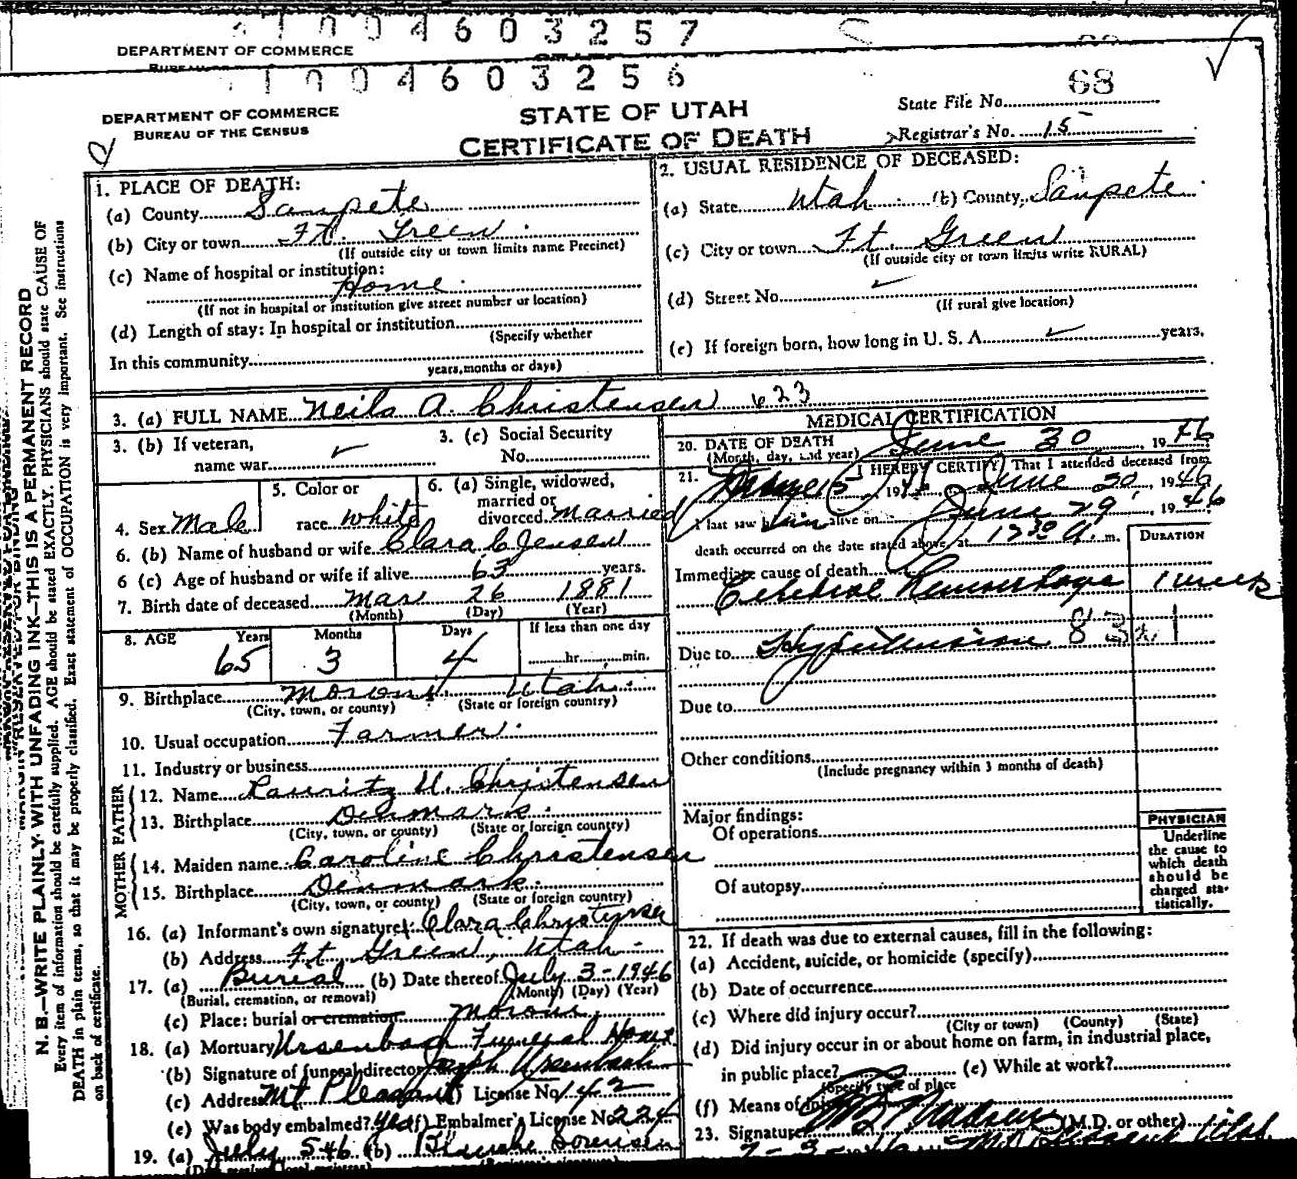 1004603257
DEPARTMENT OF COMMERCE
1004603256
68
DEPARTMENT OF COMMERCE
BUREAU OF THE CENSUS
STATE OF UTAH
CERTIFICATE OF DEATH
State File No.
Registrar's No. 15
1. PLACE OF DEATH:
(a) County Sanpete
(b) City or town Ft. Green
(If outside city or town limits name Precinct)
(c) Name of hospital or institution:
Home
(If not in hospital or institution give street number or location)
(d) Length of stay: In hospital or institution
(Specify whether
In this community
years, months or days)
2. USUAL RESIDENCE OF DECEASED:
(a) State Utah (b) County Sanpete
(c) City or town Ft. Green
(If outside city or town limits write RURAL)
(d) Street No.
(If rural give location)
(e) If foreign born, how long in U. S. A. years.
3. (a) FULL NAME Neils A. Christensen 623
3. (b) If veteran,
name war
3. (c) Social Security
No.
4. Sex Male
5. Color or
race white
6. (a) Single, widowed,
married or
divorced married
6. (b) Name of husband or wife Clara C Jensen
6 (c) Age of husband or wife if alive 63 years.
7. Birth date of deceased Mar 26 1881
(Month) (Day) (Year)
8. AGE Years Months Days If less than one day
65 3 4 hr. min.
9. Birthplace Moroni Utah
(City, town, or county) (State or foreign country)
10. Usual occupation Farmer
11. Industry or business
FATHER
12. Name Lauritz U. Christensen
13. Birthplace Denmark
(City, town, or county) (State or foreign country)
MOTHER
14. Maiden name Caroline Christensen
15. Birthplace Denmark
(City, town, or county) (State or foreign country)
16. (a) Informant's own signature Clara Christensen
(b) Address Ft Green, Utah
17. (a) Burial (b) Date thereof July 3-1946
(Burial, cremation, or removal) (Month) (Day) (Year)
(c) Place: burial or cremation Moroni
18. (a) Mortuary Ursenbach Funeral Home
(b) Signature of funeral director Joseph Ursenbach
(c) Address Mt Pleasant License No. 142
(e) Was body embalmed? yes (f) Embalmer's License No. 224
19. (a) July 5-46 (b) Blanche Sorensen
MEDICAL CERTIFICATION
20. DATE OF DEATH June 30, 1946
(Month, day, and year)
21. I HEREBY CERTIFY, That I attended deceased from
1946, June 30, 1946
I last saw him alive on June 29, 1946
death occurred on the date stated above, at 12 30 A. m.
DURATION
Immediate cause of death
Cerebral Hemorrhage 1 week
83 1
Due to Hypertension
Due to
Other conditions
(Include pregnancy within 3 months of death)
Major findings:
Of operations
Of autopsy
PHYSICIAN
Underline
the cause to
which death
should be
charged sta-
tistically.
22. If death was due to external causes, fill in the following:
(a) Accident, suicide, or homicide (specify)
(b) Date of occurrence
(c) Where did injury occur?
(City or town) (County) (State)
(d) Did injury occur in or about home on farm, in industrial place,
in public place? (e) While at work?
(Specify type of place
(f) Means of
23. Signature Madsen (M.D. or other)
N. B.—WRITE PLAINLY WITH UNFADING INK—THIS IS A PERMANENT RECORD
Every item of information should be carefully supplied. AGE should be stated EXACTLY. PHYSICIANS should state CAUSE OF
DEATH in plain terms, so that it may be properly classified. Exact statement of OCCUPATION is very important. See instructions
on back of certificate.